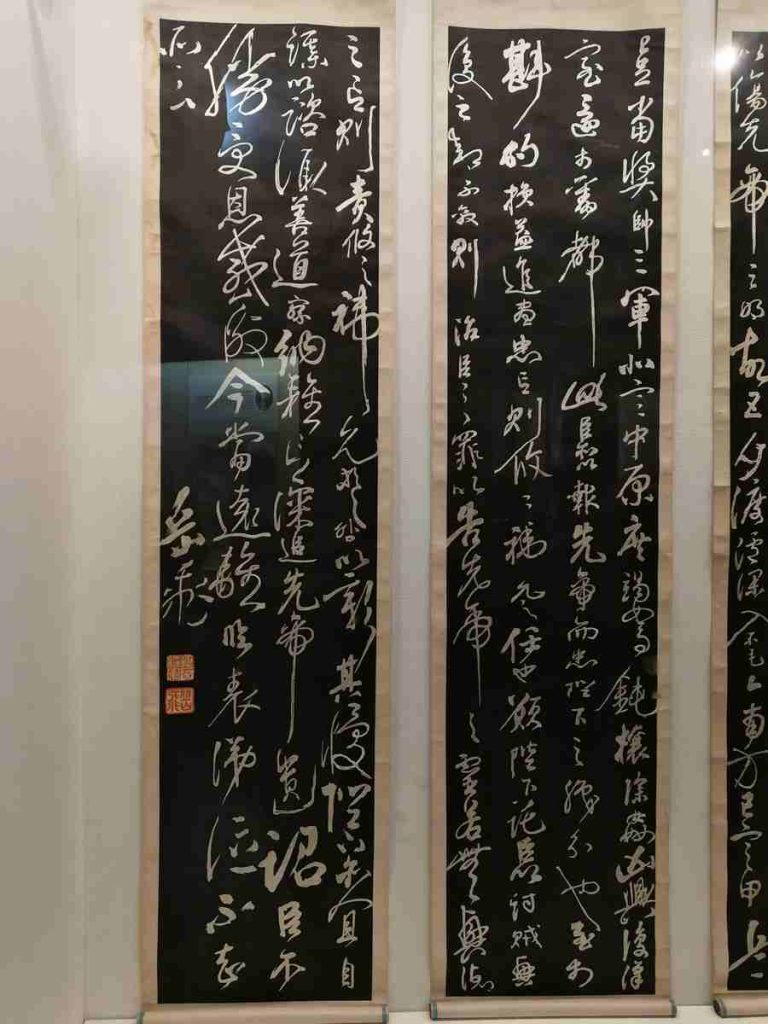 以傷先帝之明故五月渡瀘深入不毛今南方已定甲兵已
足當獎帥三軍北定中原庶竭駑鈍攘除姦凶興復漢
室還於舊都此臣所以報先帝而忠陛下之職分也至於
斟酌損益進盡忠言則攸之禕允之任也願陛下託臣以討賊興
復之效不效則治臣之罪以告先帝之靈若無興德
之言則責攸之禕允等之咎以彰其慢陛下亦宜自
謀以諮諏善道察納雅言深追先帝遺詔臣不
勝受恩感激今當遠離臨表涕泣不知
所云
岳飛